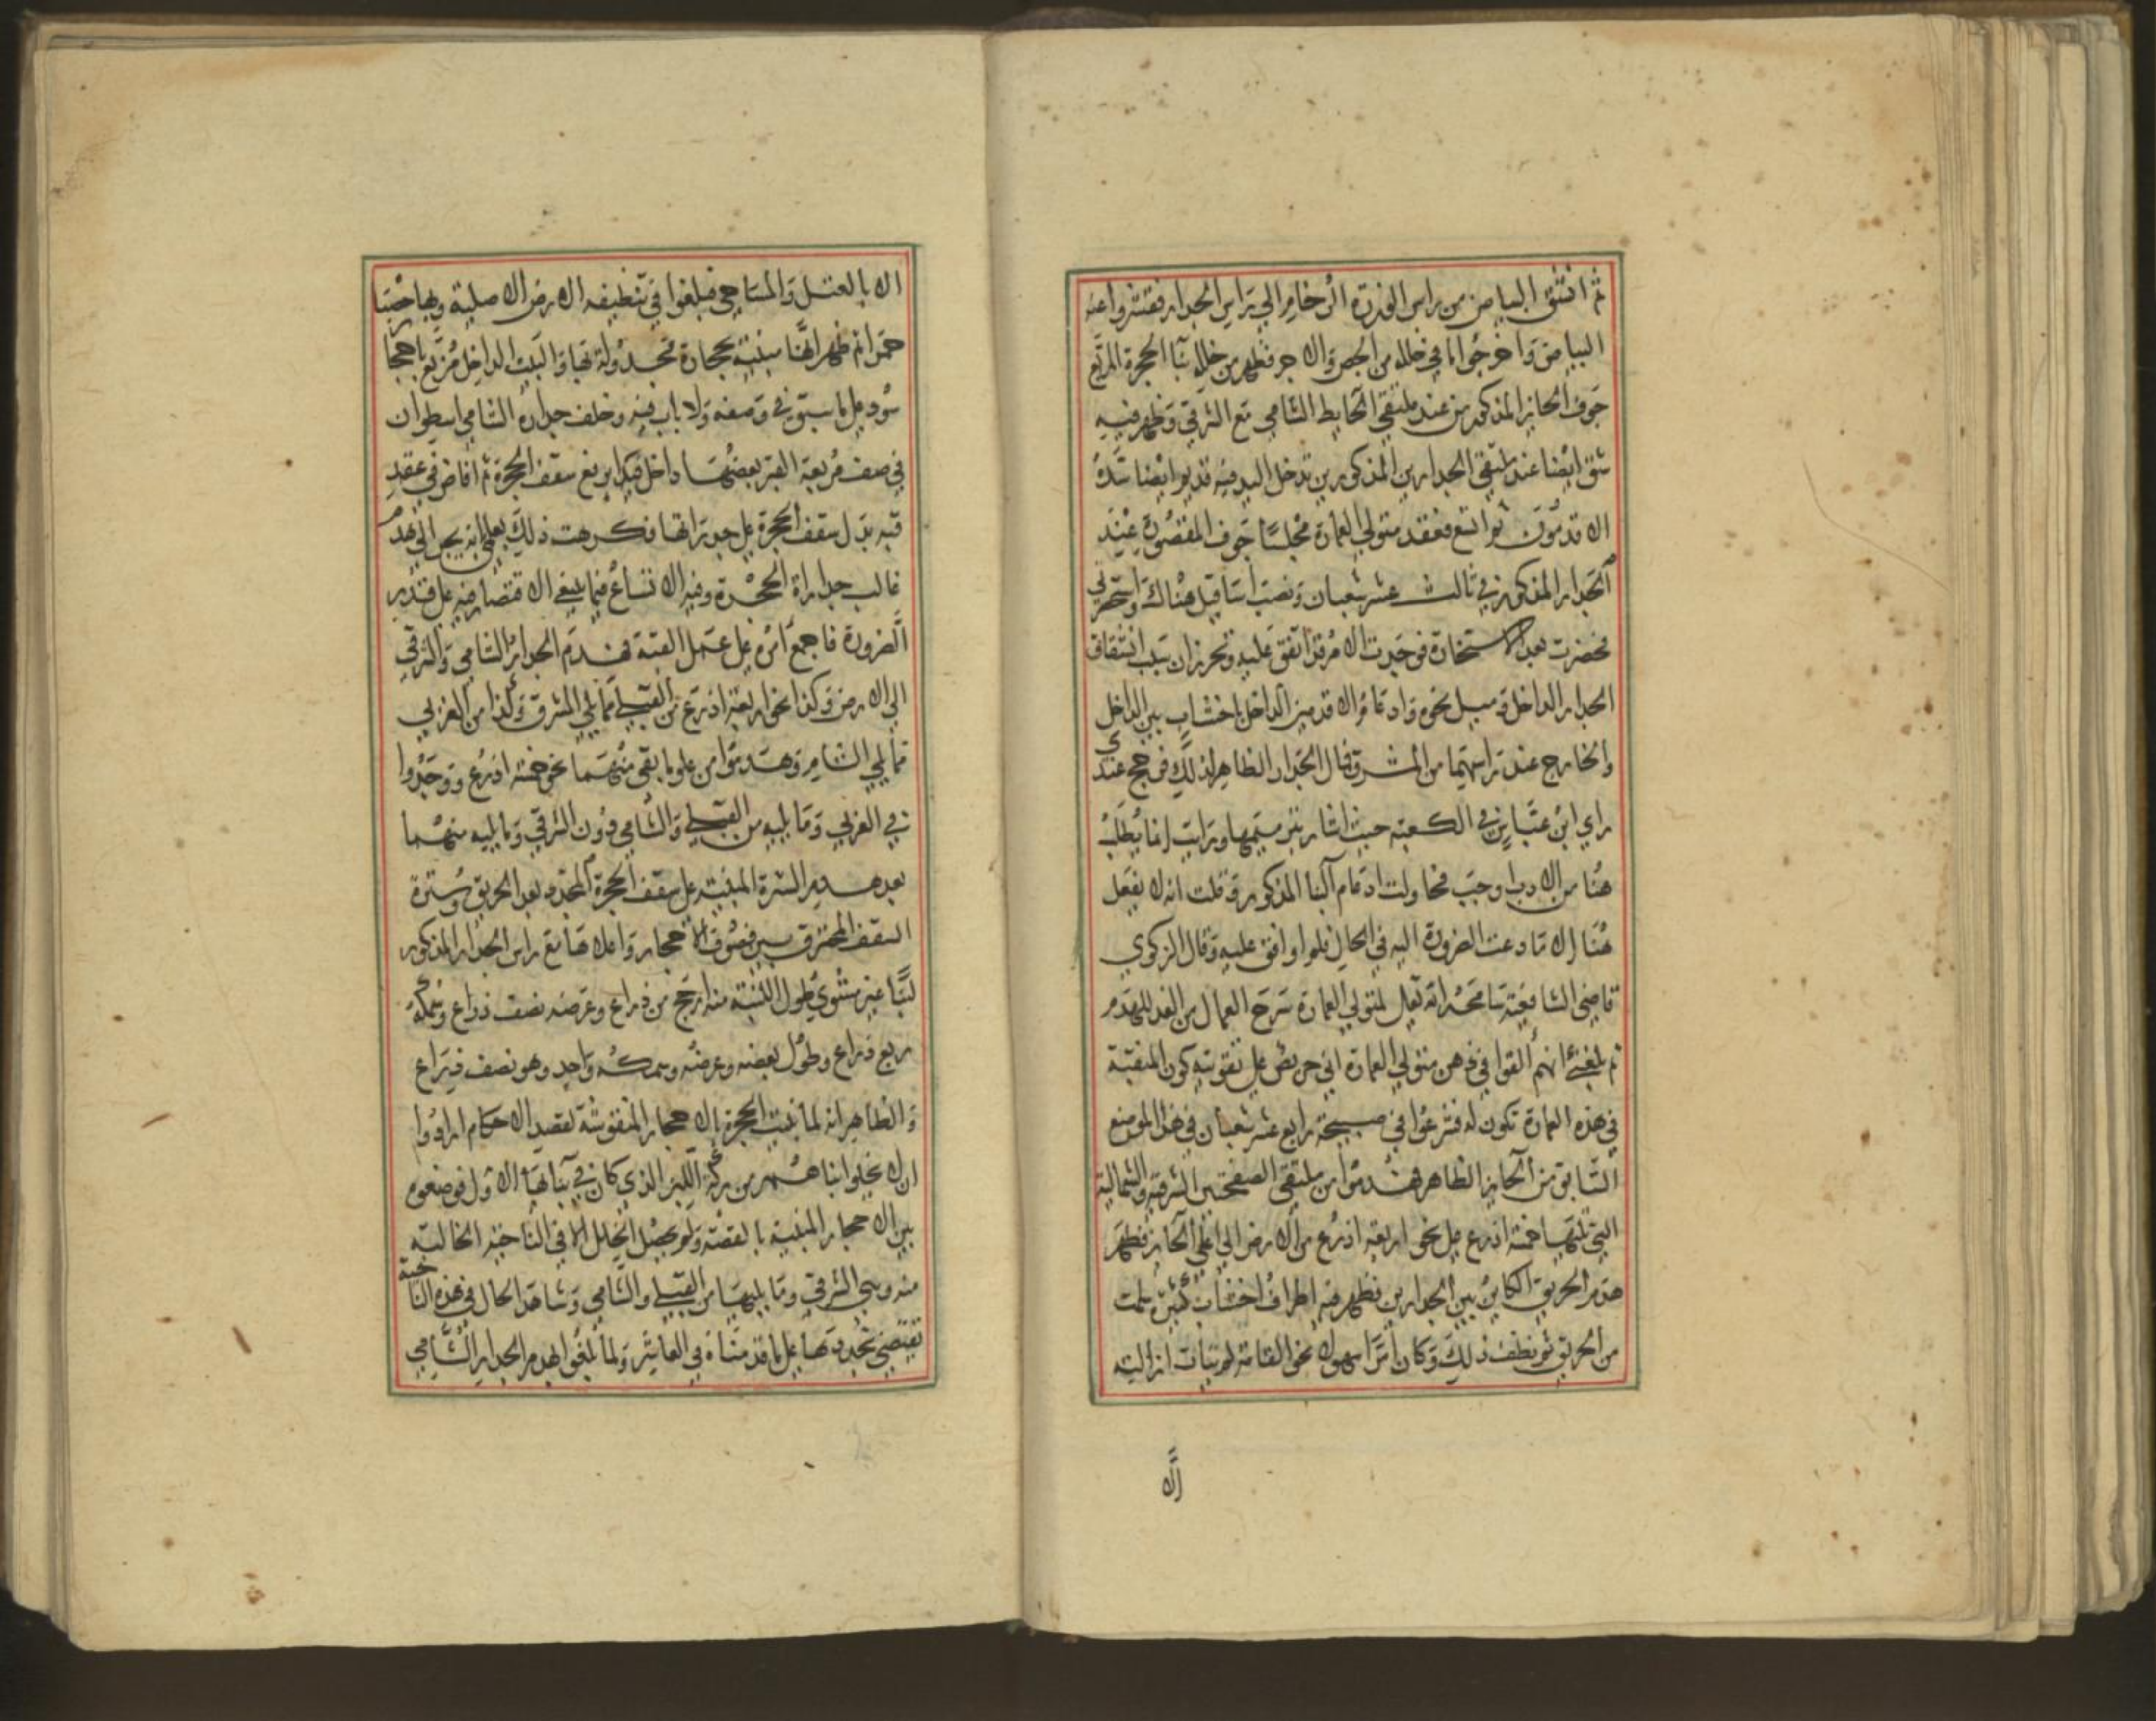 ثم انشق البياض من راس الوزرة الرخام الى راس الجدار فقشروا عنه
البياض واخرجوا ما في خلله من الجص والاجر فظهر من خلله بنا الحجرة المربع
جوف الحايز المذكور من عند ملتقى الحايط الشامي مع الشرقي وظهر فيه
شق ايضا عند ملتقى الجدارين المذكورين تدخل اليد فيه قديم ايضا سده
الاقدمون ثم اتسع فعقد متولي العمارة مجلسا جوف المقصورة عند
الجدار المذكور في ثالث عشر شعبان ونصب اساقيل هناك
فحضرت بعد الاستخارة فوجدت الامر قد اتفق عليه وتحرر ان سبب انشقاق
الجدار الداخل وميل نحوه وادعام الاقدمين الداخل باخشاب بين الداخل
والخارج عند راسهما من المشرق فمال الجدار الظاهر لذلك فرجح عندي
راي ابن عباس في الكعبة حيث اشار بترميمها ورايت انما يطلب
هنا من الادب اوجب فحاولت ادعام البنا المذكور وقلت انه لا يفعل
هنا الا ما دعت الضرورة اليه في الحال فلم اوافق عليه وقال الزكوي
قاضي الشافعية سامحه الله تعالى لمتولي العمارة سرح العمال من الغد للهدم
ثم بلغني انهم القوا في ذهن متولي العمارة اني حريص على تفويته كون المنقبة
في هذه العمارة تكون له فشرعوا في صبيحة رابع عشر شعبان في هذا الموضع
السابق من الحايز الظاهر فهدموا من ملتقى الصفحتين الشرقية والشمالية
التي تليها خمسة اذرع على نحو اربعة اذرع من الارض الى اعلى الحايز فظهر
هدم الحريق الكاين بين الجدارين فظهر فيه اطراف اخشاب كثيرة سلمت
من الحريق ثم نظف ذلك وكان امرا مهولا نحو القامة لم يتات ازالته
الا
الا بالعتل والمساحي فبلغوا في تنظيفه الارض الاصلية وبها حصبا
حمرا ثم ظهر انها مبنية بحجارة مجدولة بها والبيت الداخل مربع باحجار
سود على ما سبق في وصفه ولا باب فيه وخلف جداره الشامي اسطوان
في صف مربعة القبر بعضها داخل فيه ثم افاض في عقد
قبه بدل سقف الحجرة على جدراتها فكرهت ذلك لعلمي انه يجر الى هدم
غالب جدارات الحجرة وفيه الاتساع فيما ينبغي الاقتصار فيه على قدر
الضرورة فاجمع امره على عمل القبة فهدم الجدار الشامي والشرقي
الى الارض وكذا نحو اربعة اذرع من القبلي مما يلي المشرق وكذا من الغربي
مما يلي الشامي وهدموا من علو ما بقي منهما نحو خمسة اذرع ووجدوا
في الغربي وما يليه من القبلي والشامي دون الشرقي وما يليه منهما
بعد هدم السترة المبنية على سقف الحجرة المجدد بعد الحريق وسترة
السقف المحترق بين فصوص الاحجار واعلاها مع راس الجدار المذكور
لبنا غير مشوي طول اللبنة منه ارجح من ذراع وعرضه نصف ذراع وسمكه
ربع ذراع وطول بعضه وعرضه وسمكه واحد وهو نصف ذراع
والظاهر انه لما بنيت الحجرة بالاحجار المنقوشة لقصد الاحكام ارادوا
ان لا يخلوا بناهم من بركة اللبن الذي كان في بنائها الاول فوضعوه
بين الاحجار المبنية بالقصة ولم يحصل الخلل الا في الناحية الخالية
منه وهي الشرقي وما يليها من القبلي والشامي وشاهد الحال في هذه الناحية
تقتضي تجددها على ما قدمناه في العاشر ولما بلغوا بهدم الجدار الشامي